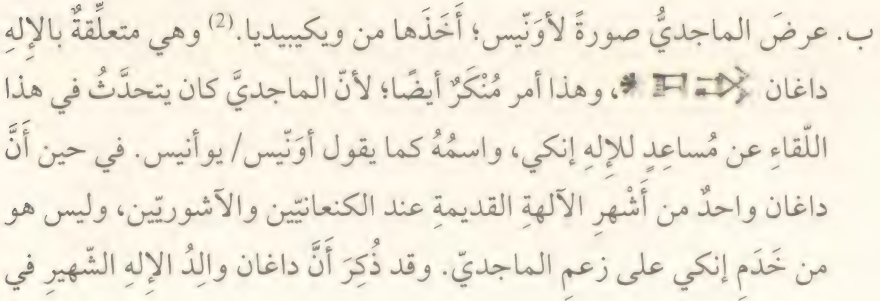 ب. عرضَ الماجديُّ صورةً لأوَنّيس؛ أَخَذَها من ويكيبيديا.(2) وهي متعلِّقةٌ بالإلهِ
داغان، وهذا أمر مُنْكَرٌ أيضًا؛ لأنّ الماجديَّ كان يتحدَّثُ في هذا
اللّقاءِ عن مُساعِدٍ للإلهِ إنكي، واسمُهُ كما يقول أوَنّيس/ يوأنيس. في حين أَنَّ
داغان واحدٌ من أَشْهرِ الآلهةِ القديمةِ عند الكنعانيّين والآشوريّين، وليس هو
من خَدَمِ إنكي على زعمِ الماجديّ. وقد ذُكِرَ أَنَّ داغان والِدُ الإلهِ الشّهيرِ في